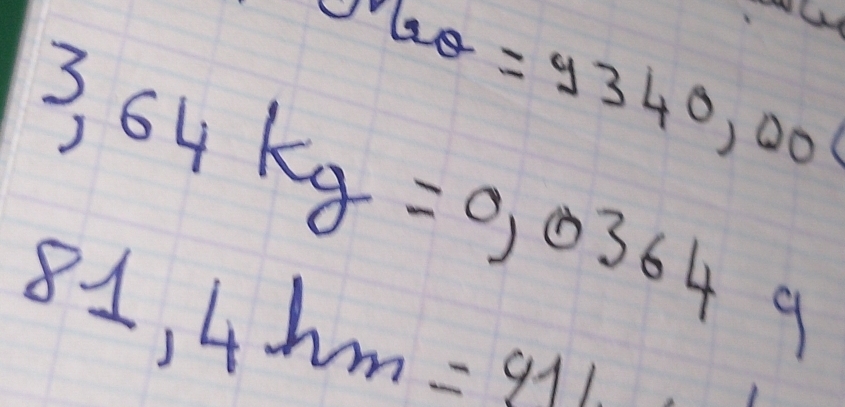 = 9340,00
3,64 kg = 0,0364 q
81,4 hm =